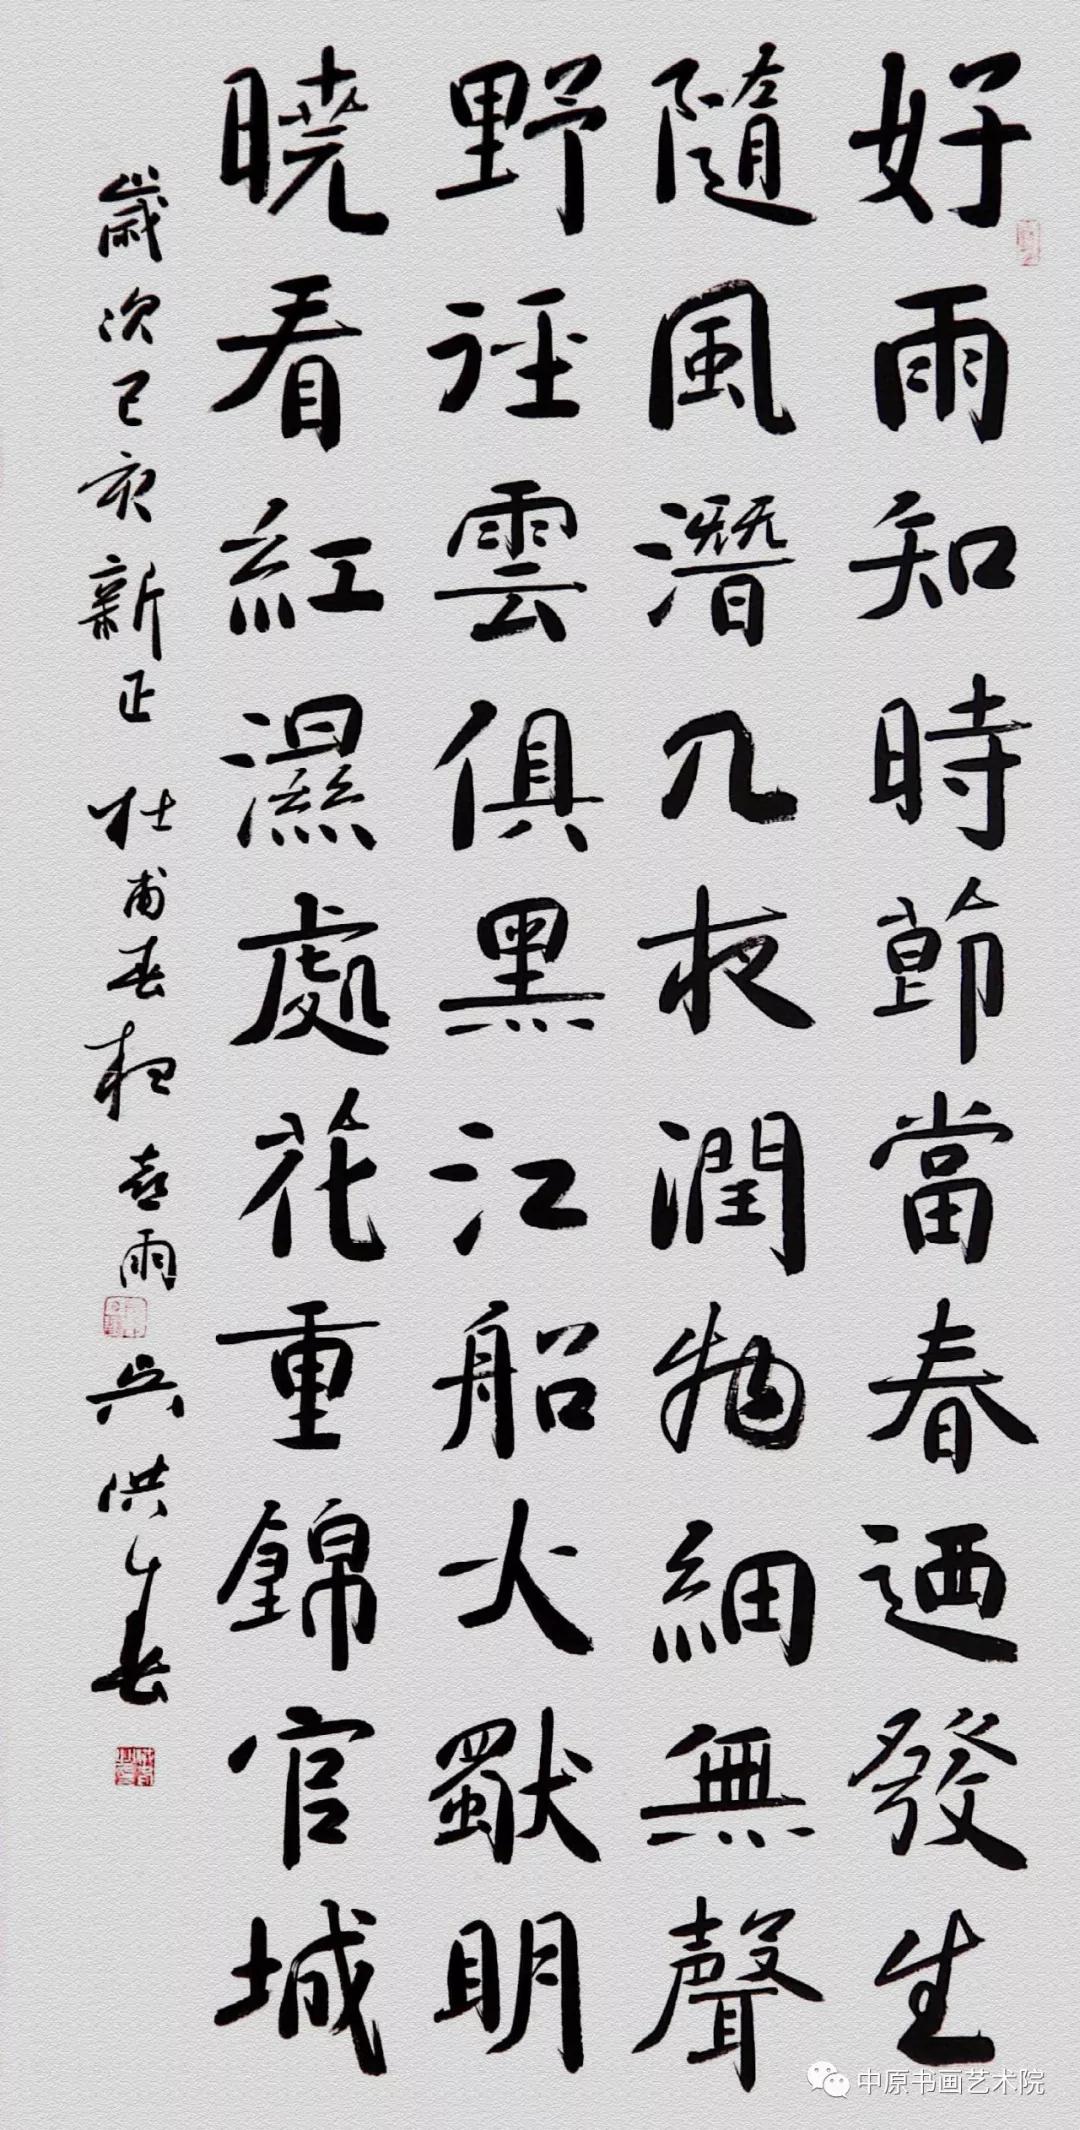 好雨知時節當春迺發生
隨風潛入夜潤物細無聲
野径雲俱黑江船火獨明
曉看紅濕處花重錦官城
歲次己亥新正杜甫春夜喜雨吴洪春
中原书画艺术院